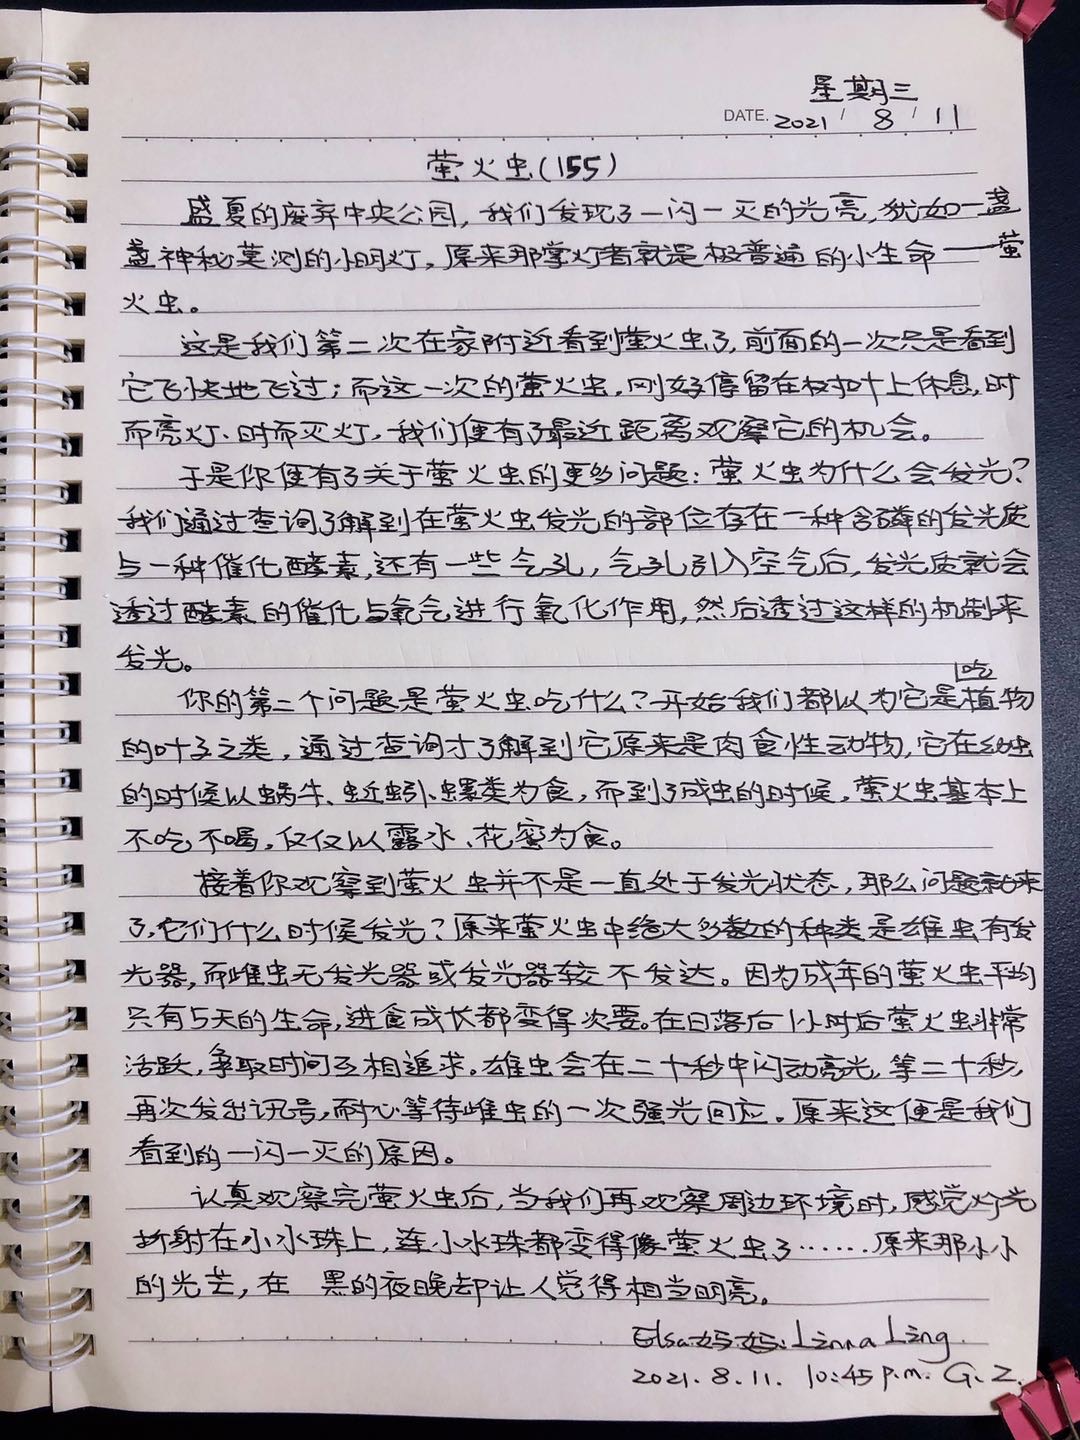 星期三
DATE. 2021 / 8 / 11
萤火虫(155)
盛夏的废弃中央公园，我们发现了一闪一灭的光亮，犹如一盏
盏神秘莫测的小明灯，原来那掌灯者就是极普通的小生命——萤
火虫。
这是我们第二次在家附近看到萤火虫了，前面的一次只是看到
它飞快地飞过；而这一次的萤火虫，刚好停留在树叶上休息，时
而亮灯、时而灭灯，我们便有了最近距离观察它的机会。
于是你便有了关于萤火虫的更多问题：萤火虫为什么会发光？
我们通过查询了解到在萤火虫发光的部位存在一种含磷的发光质
与一种催化酵素，还有一些气孔，气孔引入空气后，发光质就会
透过酵素的催化与氧气进行氧化作用，然后透过这样的机制来
发光。
吃
你的第二个问题是萤火虫吃什么？开始我们都以为它是植物
的叶子之类，通过查询才了解到它原来是肉食性动物，它在幼虫
的时候以蜗牛、蚯蚓、螺类为食，而到了成虫的时候，萤火虫基本上
不吃不喝，仅仅以露水、花蜜为食。
接着你观察到萤火虫并不是一直处于发光状态，那么问题就来
了，它们什么时候发光？原来萤火虫中绝大多数的种类是雄虫有发
光器，而雌虫无发光器或发光器较不发达。因为成年的萤火虫平均
只有5天的生命，进食成长都变得次要。在日落后1小时后萤火虫非常
活跃，争取时间互相追求。雄虫会在二十秒中闪动亮光，等二十秒，
再次发出讯号，耐心等待雌虫的一次强光回应。原来这便是我们
看到的一闪一灭的原因。
认真观察完萤火虫后，当我们再观察周边环境时，感觉灯光
折射在小水珠上，连小水珠都变得像萤火虫了……原来那小小
的光芒，在 黑的夜晚却让人觉得相当明亮。
Elsa妈妈：Linna Ling
2021.8.11. 10:45 p.m. G.Z.